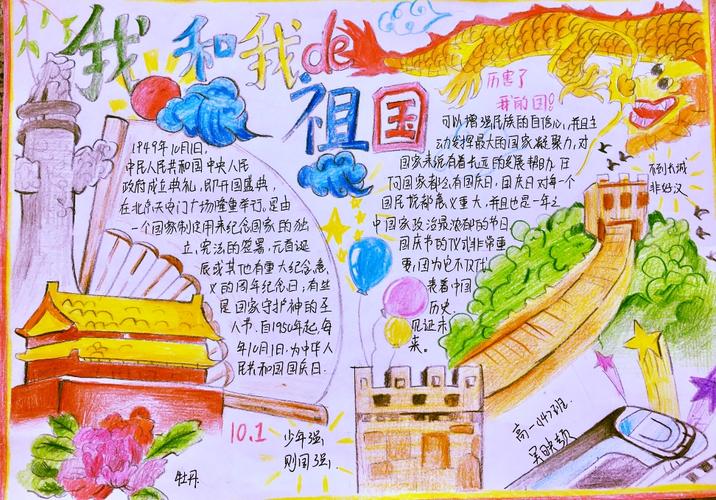 我和我de
祖国
1949年10月1日,
中民人民共和国中央人民
政府成立典礼,即开国盛典,
在北京天安门广场隆重举行。是由
一个国家制定用来纪念国家的独
立、宪法的签署、元首诞
辰或其他有重大纪念意
义的周年纪念日;有些
是国家守护神的圣
人节。自1950年起,每
年10月1日,为中华人
民共和国国庆日.
厉害了
我的国!
可以增强民族的自信心,并且主
动发挥最大的国家凝聚力,对
国家来说有着长远的发展帮助。任
何国家都会有国庆日,国庆日对每一个
国民说都意义重大,并且也是一年之
中国家政治最浓郁的节日
国庆节的仪式非常重
要,因为它不仅代
表着中国
历史,
见证未
来。
不到长城
非好汉
10.1
少年强,
则国强,
牡丹
高一147班.